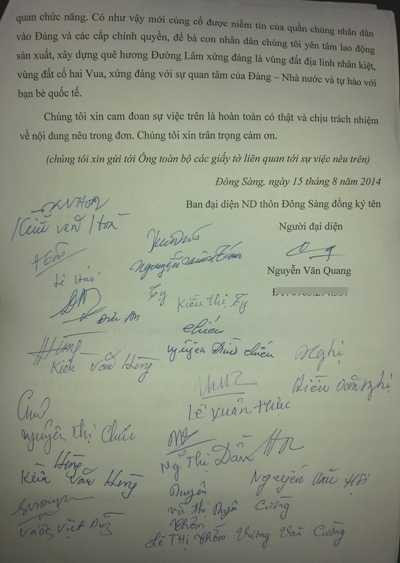 quan chức năng. Có như vậy mới củng cố được niềm tin của quần chúng nhân dân
vào Đảng và các cấp chính quyền, để bà con nhân dân chúng tôi yên tâm lao động
sản xuất, xây dựng quê hương Đường Lâm xứng đáng là vùng đất địa linh nhân kiệt,
vùng đất cổ hai Vua, xứng đáng với sự quan tâm của Đảng – Nhà nước và tự hào với
bạn bè quốc tế.
Chúng tôi xin cam đoan sự việc trên là hoàn toàn có thật và chịu trách nhiệm
về nội dung nêu trong đơn. Chúng tôi xin trân trọng cảm ơn.
(chúng tôi xin gửi tới Ông toàn bộ các giấy tờ liên quan tới sự việc nêu trên)
Đông Sàng, ngày 15 tháng 8 năm 2014
Ban đại diện ND thôn Đông Sàng đồng ký tên
Người đại diện
Nguyễn Văn Quang
Kiều văn Hoà
Kiều Thị Ty
Kiều văn Hùng
Kiều văn Nghị
Lê Xuân Thức
Nguyễn Thị Chúc
Ng Thị Dần
Kiều Văn Hồng
Duyên
Cường
Lê Thị Thơm
Vương Văn Cường